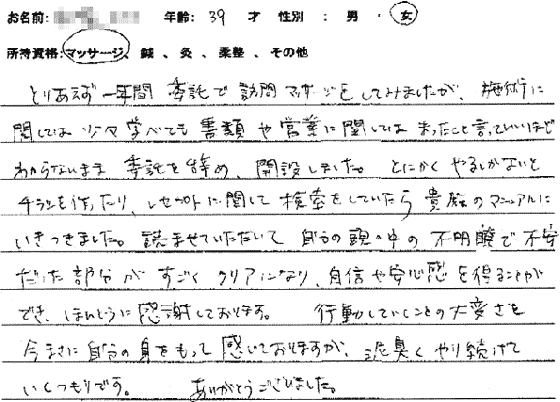 お名前: 年齢: 39 才 性別 : 男 ・ 女
所持資格:マッサージ、鍼 、灸 、柔整 、その他
とりあえず一年間 委託で訪問マッサージをしてみましたが、施術に
関しては少々学べても書類や営業に関してはまったくと言っていいほど
わからないまま 委託を辞め、開設しました。 とにかくやるしかないと
チラシを作ったり、レセプトに関して検索をしていたら貴殿のマニュアルに
いきつきました。読ませていただいて 自分の頭の中の不明瞭で不安
だった部分が すごく クリアになり、自信や安心感を得ることが
でき、ほんとうに感謝しております。 行動していくことの大変さを
今まさに自分の身をもって感じておりますが、泥臭くやり続けて
いくつもりです。 ありがとうございました。